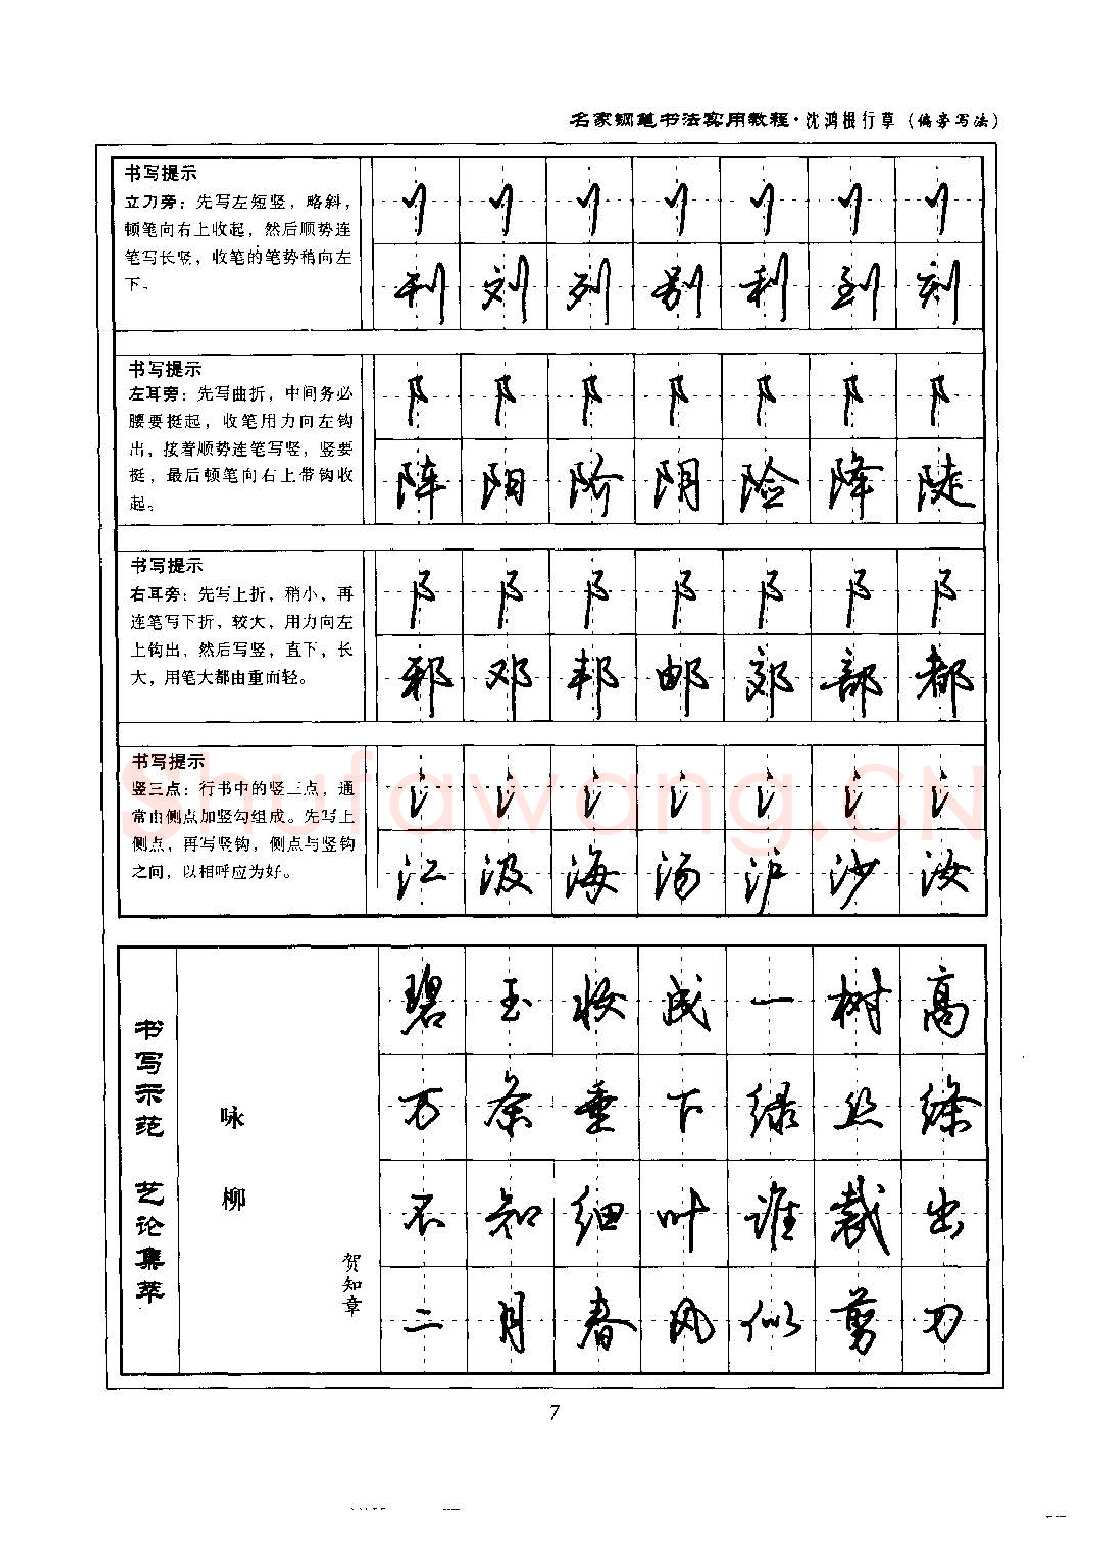 名家钢笔书法实用教程·沈鸿根行草（偏旁写法）
书写提示
立刀旁：先写左短竖，略斜，
顿笔向右上收起，然后顺势连
笔写长竖，收笔的笔势稍向左
下。
刂 刂 刂 刂 刂 刂 刂
刊 刘 列 别 利 到 刻
书写提示
左耳旁：先写曲折，中间务必
腰要挺起，收笔用力向左钩
出，按着顺势连笔写竖，竖要
挺，最后顿笔向右上带钩收
起。
阝 阝 阝 阝 阝 阝 阝
阵 阳 阶 阴 险 降 陡
书写提示
右耳旁：先写上折，稍小，再
连笔写下折，较大，用力向左
上钩出，然后写竖，直下，长
大，用笔大都由重而轻。
阝 阝 阝 阝 阝 阝 阝
邪 邓 邦 邮 郊 部 都
书写提示
竖三点：行书中的竖三点，通
常由侧点加竖勾组成。先写上
侧点，再写竖钩，侧点与竖钩
之间，以相呼应为好。
氵 氵 氵 氵 氵 氵 氵
江 汲 海 汤 沪 沙 汝
Shufawang.CN
书写示范 艺论集萃
咏柳
贺知章
碧玉妆成一树高
万条垂下绿丝绦
不知细叶谁裁出
二月春风似剪刀
7